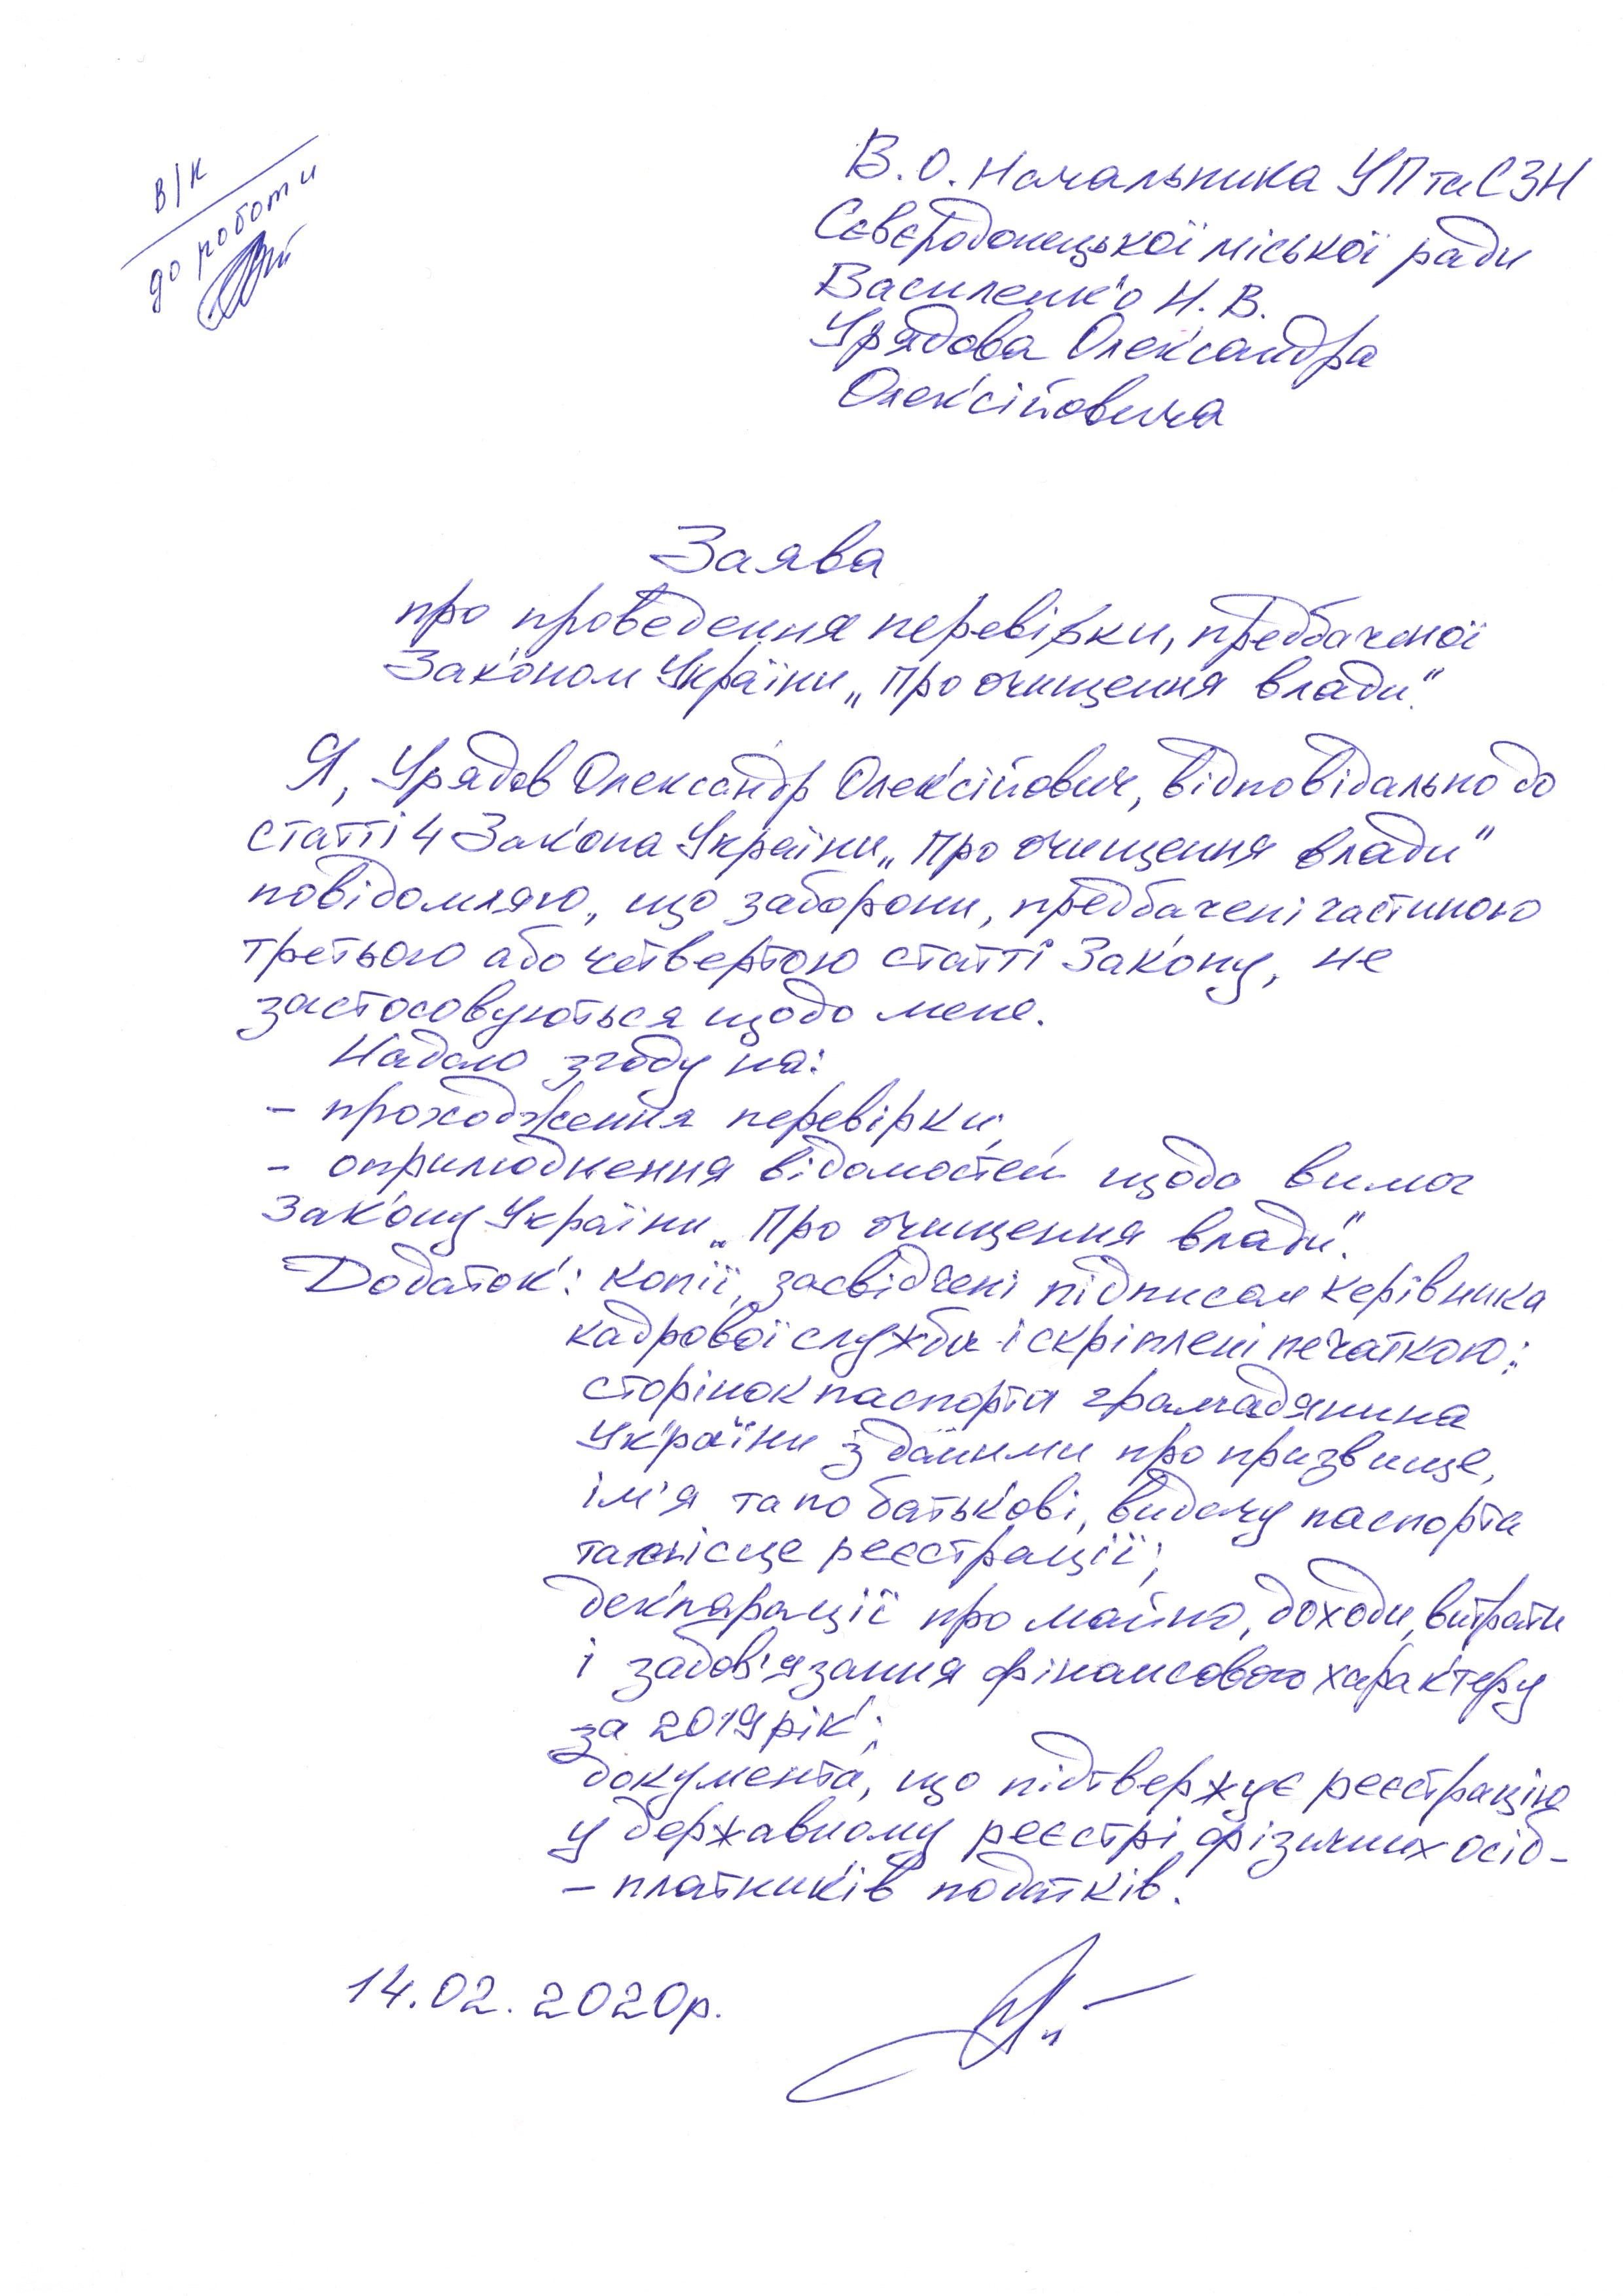 в/к
до роботи
В.О. Начальника УПтаСЗН
Сєвєродонецької міської ради
Василенко Н.В.
Урядова Олександра
Олексійовича
Заява
про проведення перевірки, предбаченої
Законом України „Про очищення влади".
Я, Урядов Олександр Олексійович, відповідально до
статті 4 Закона України „Про очищення влади"
повідомляю, що заборони, предбачені частиною
третьою або четвертою статті Закону, не
застосовуються щодо мене.
Надаю згоду на:
- проходження перевірки;
- оприлюднення відомостей щодо вимог
Закону України „Про очищення влади".
Додаток: копії, засвідчені підписом керівника
кадрової служби і скріплені печаткою:
сторінок паспорта громадянина
України з даними про призвище,
ім'я та по батькові, видачу паспорта
та місце реєстрації;
декларації про майно, доходи, витрати
і забов'язання фінансового характеру
за 2019 рік;
документа, що підтвержує реєстрацію
у державному реєстрі фізичних осіб-
- платників податків.
14.02.2020р.